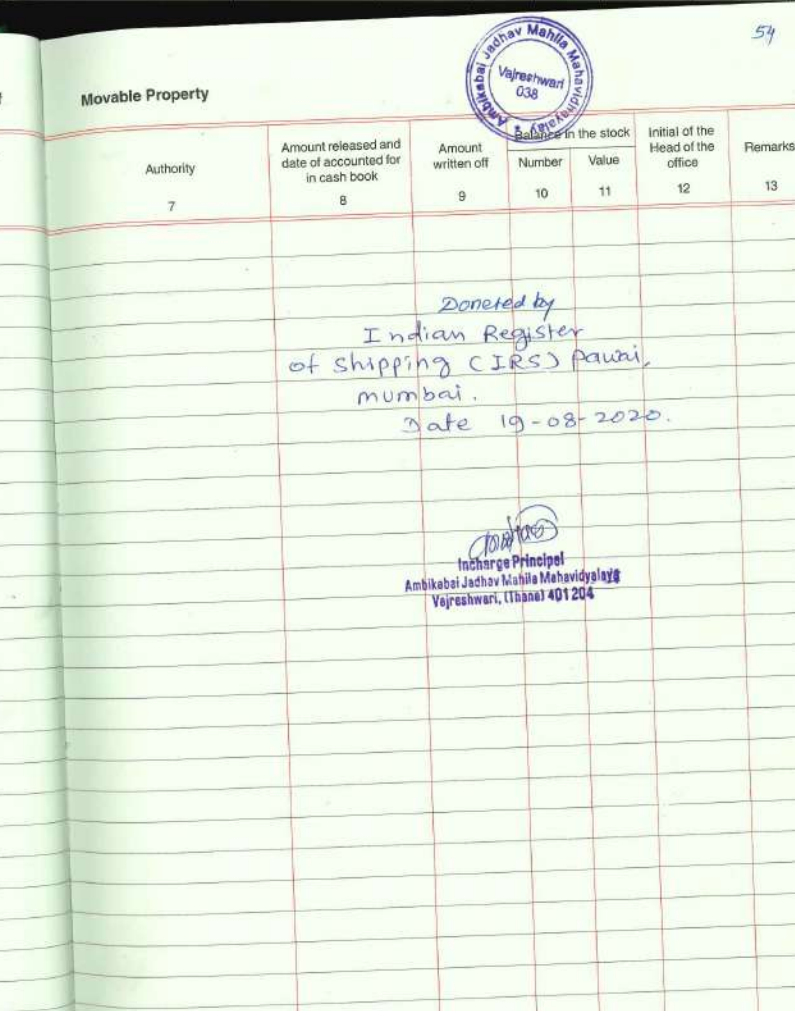 54
Ambikabai Jadhav Mahila Mahavidhayalay
Vajreshwari
038
Movable Property
Authority
Amount released and
date of accounted for
in cash book
Amount
written off
Balance in the stock
Number
Value
Initial of the
Head of the
office
Remarks
7
8
9
10
11
12
13
Doneted by
Indian Register
of Shipping (IRS) Pawai,
mumbai.
Date 19-08-2020.
Incharge Principal
Ambikabai Jadhav Mahila Mahavidyalaya
Vajreshwari, (Thane) 401 204